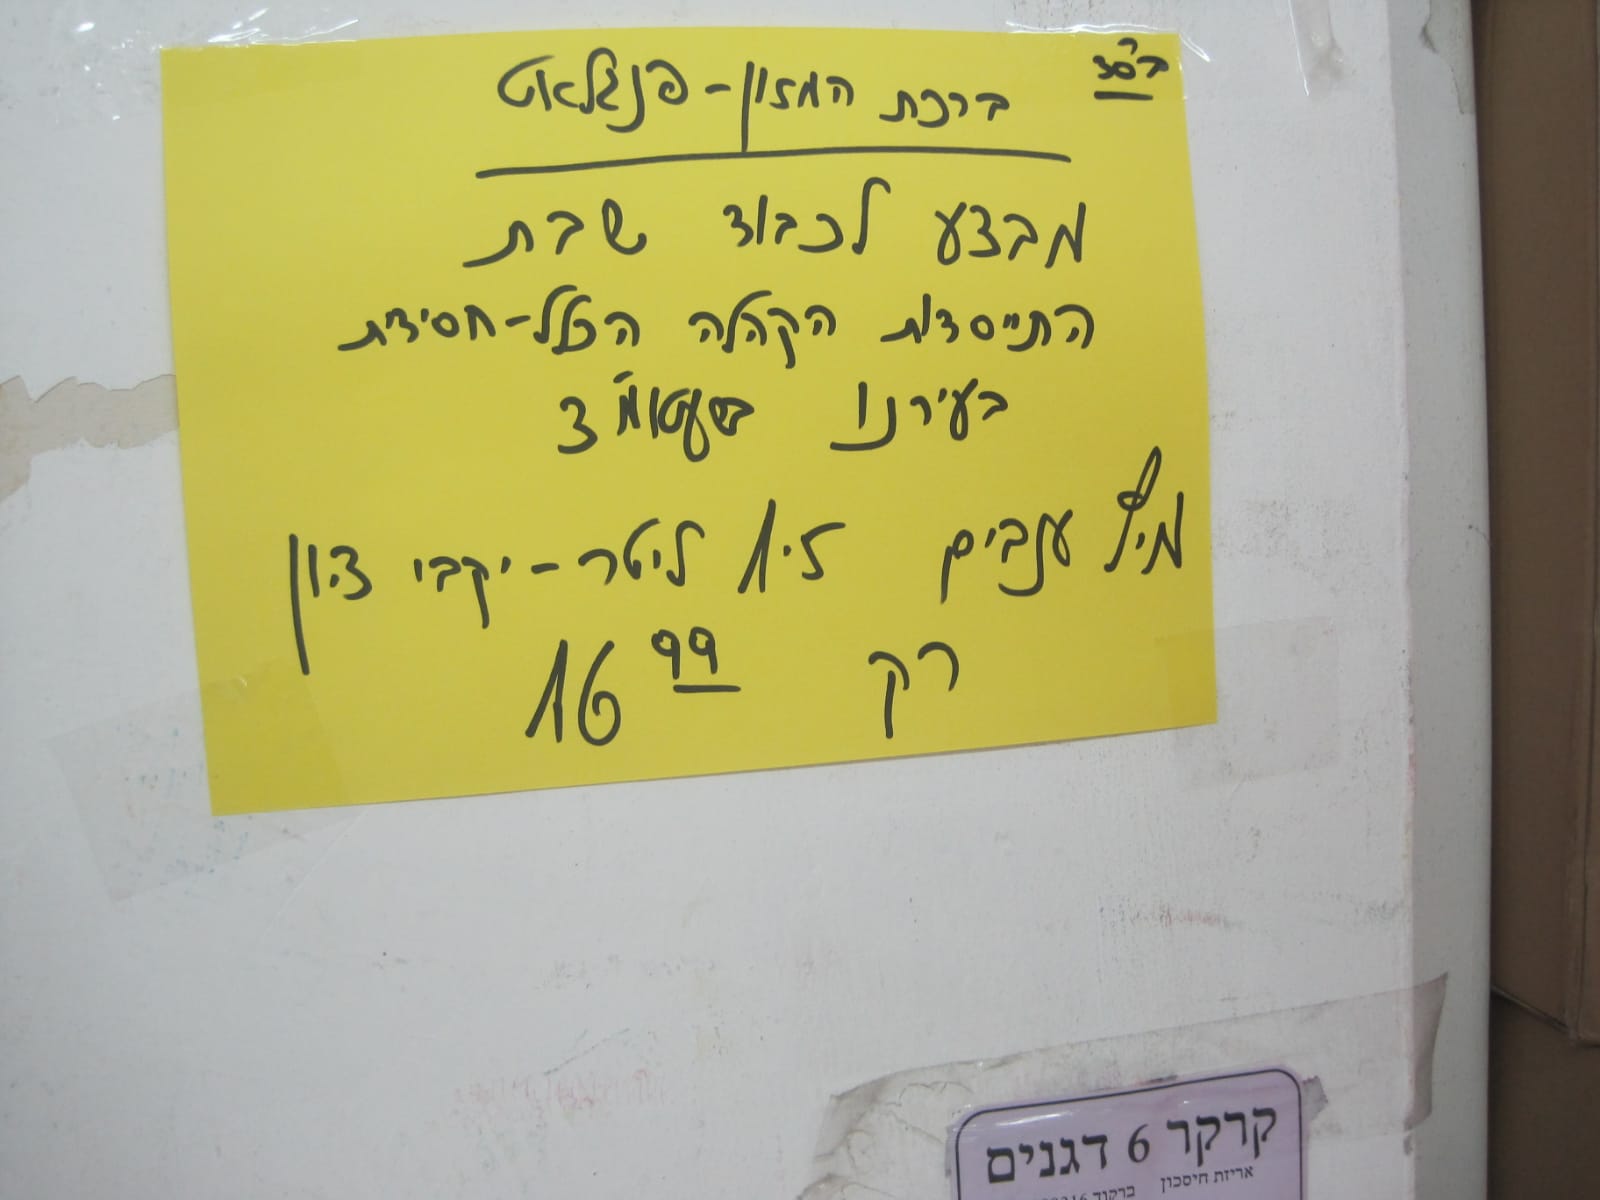 בס"ד
ברכת המזון - פנגלאט
מבצע לכבוד שבת
התייסדות הקהלה הכלל-חסידית
בעירנו בשעטומ"צ
מיץ ענבים 1.5 ליטר - יקבי ציון
רק 16.99
קרקר 6 דגנים
אריזת חיסכון ברקוד